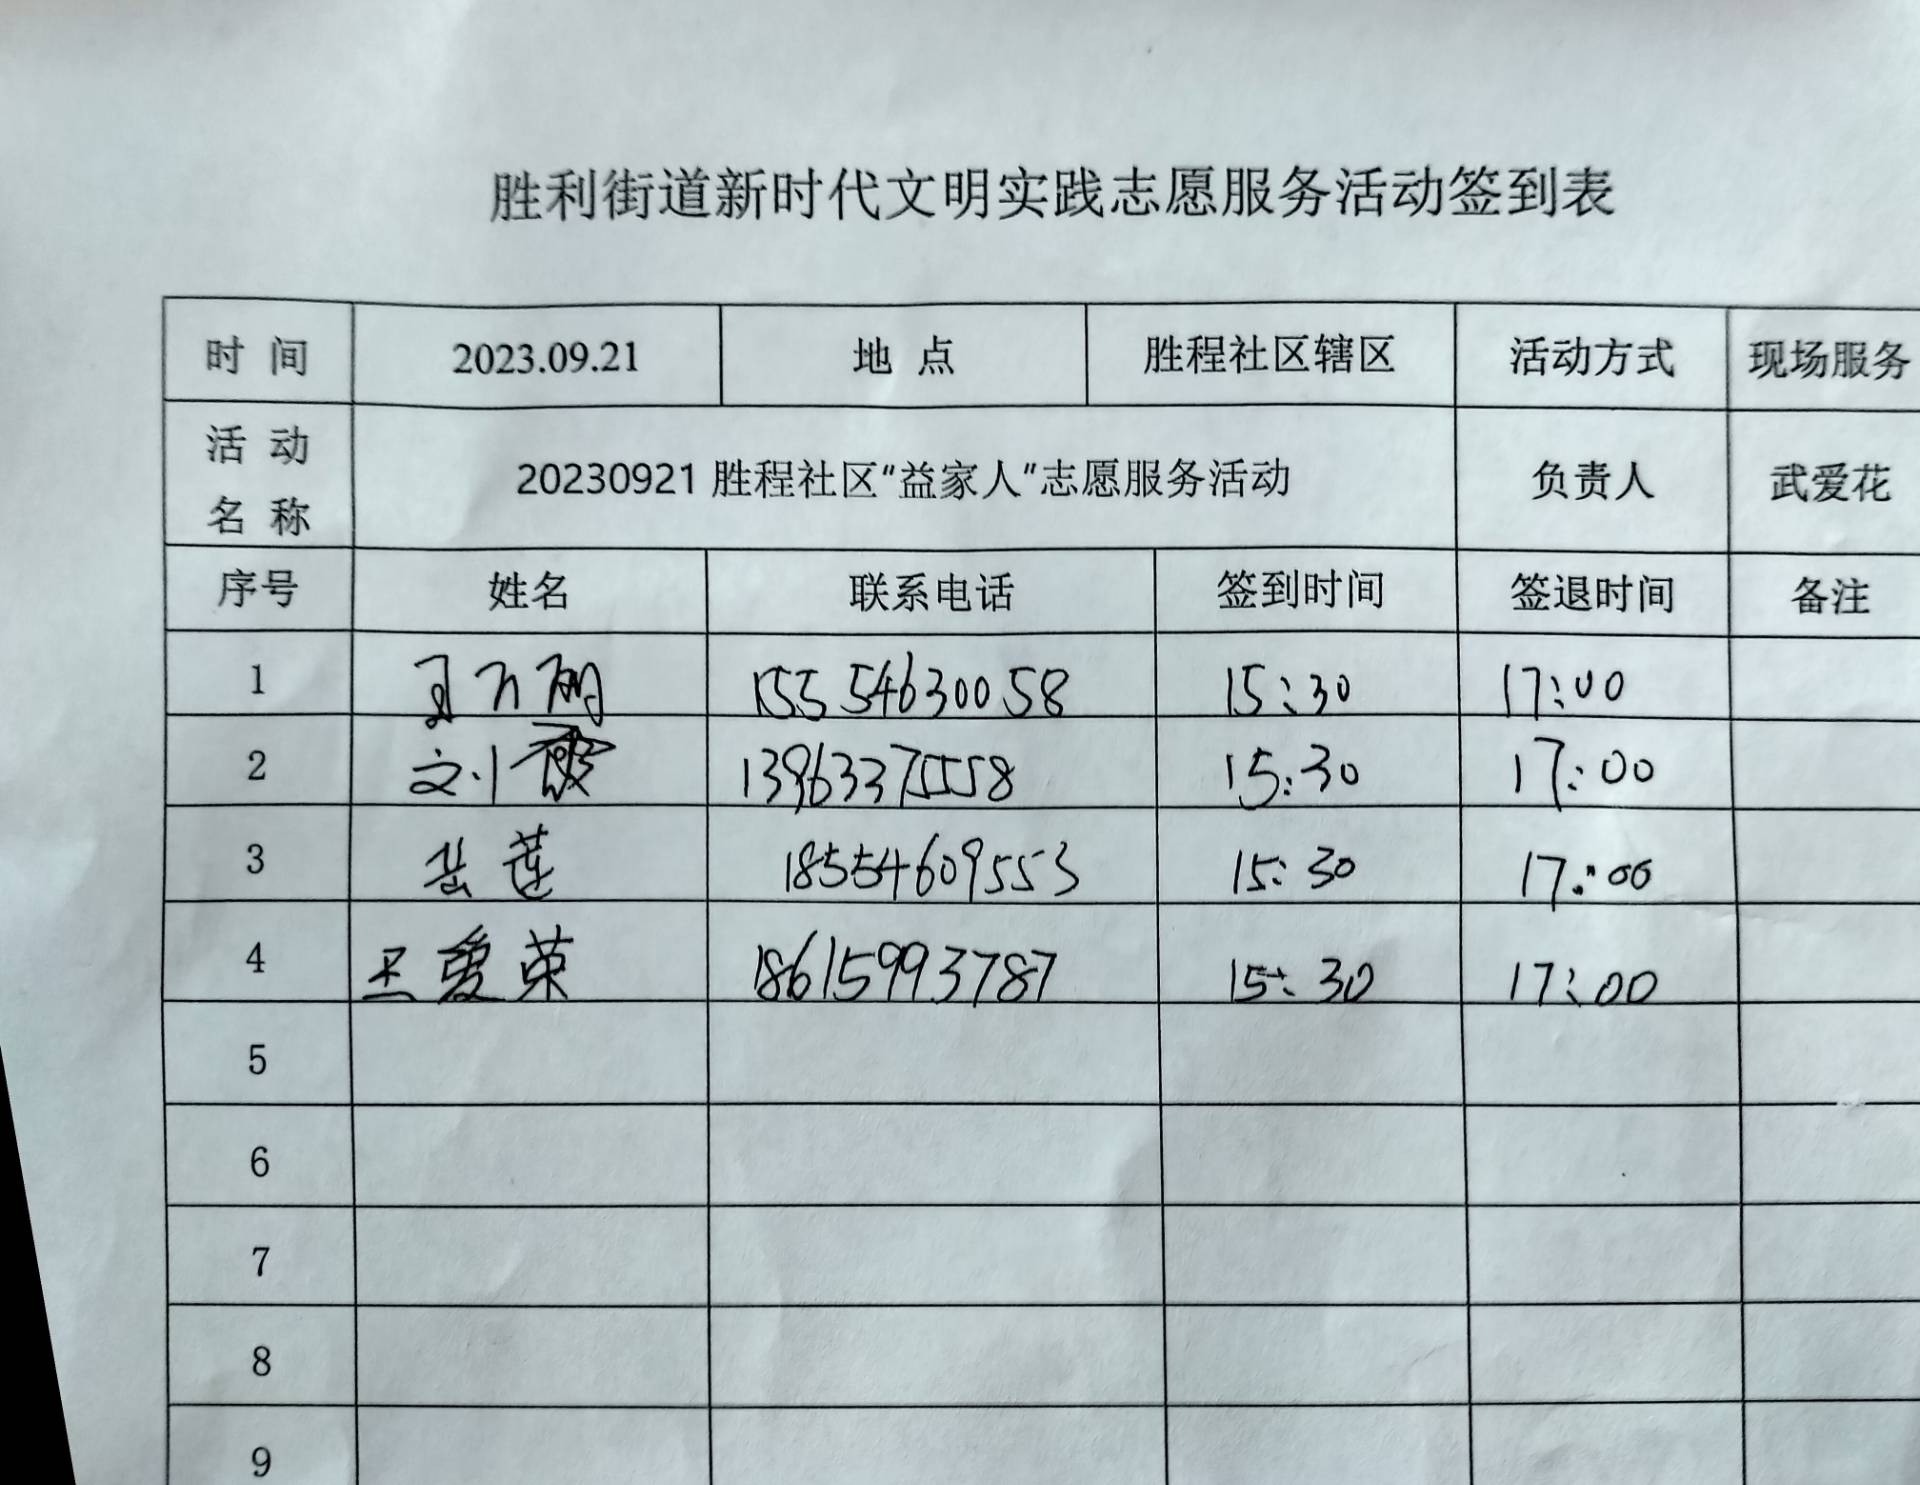 胜利街道新时代文明实践志愿服务活动签到表
时 间 2023.09.21 地 点 胜程社区辖区 活动方式 现场服务
活 动 名 称 20230921 胜程社区“益家人”志愿服务活动 负责人 武爱花
序号 姓名 联系电话 签到时间 签退时间 备注
1 15554630058 15:30 17:00
2 刘霞 13963375558 15:30 17:00
3 岳莲 18554609553 15:30 17:00
4 王爱荣 18615993787 15:30 17:00
5
6
7
8
9